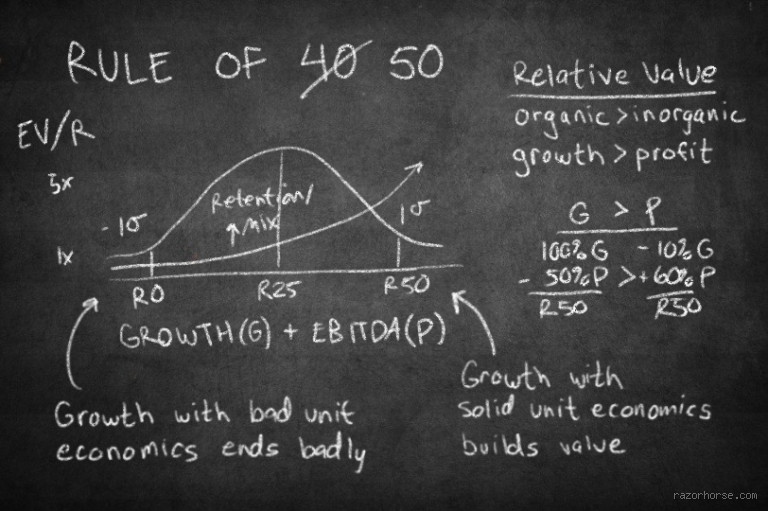 RULE OF 40 50
EV/R
5x
1x
-1σ
Retention/
↑mix
1σ
R0
R25
R50
GROWTH(G) + EBITDA(P)
Growth with bad unit
economics ends badly
Growth with
solid unit economics
builds value
Relative Value
organic > inorganic
growth > profit
G > P
100% G -10% G
- 50% P > +60% P
R50 R50
razorhorse.com